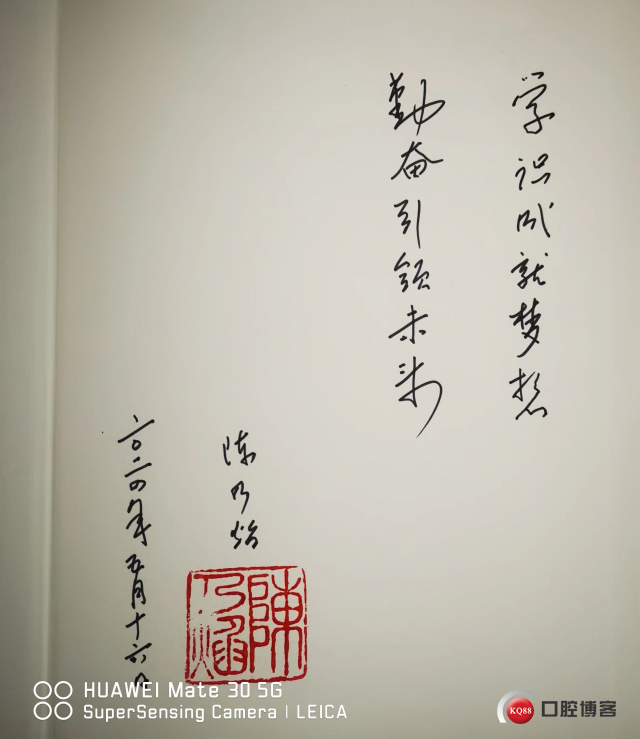 学识成就梦想
勤奋引领未来
陈乃焰
陳乃焰
二〇二四年五月十六日
HUAWEI Mate 30 5G
SuperSensing Camera | LEICA
KQ88 口腔博客